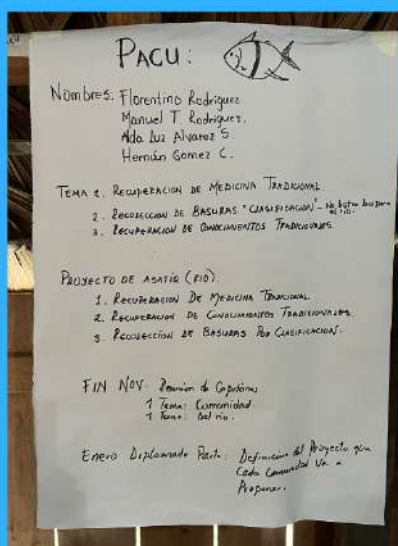 PACU:
Nombres: Florentino Rodriguez
Manuel T. Rodriguez.
Alda Luz Alvarez S.
Hernán Gomez C.
TEMA 1. RECUPERACION DE MEDICINA TRADICIONAL.
2. RECOLECCIÓN DE BASURAS "CLASIFICACION" - No botar basura al rio.
3. RECUPERACION DE CONOCIMIENTOS TRADICIONALES.
PROYECTO DE ASATIQ (RIO).
1. RECUPERACION DE MEDICINA TRADICIONAL.
2. RECUPERACIÓN DE CONOCIMIENTOS TRADICIONALES.
3. RECOLECCIÓN DE BASURAS POR CLASIFICACION.
FIN NOV. Reunion de Capitanes
1 Tema: Comunidad.
1 Tema: Del rio.
Enero Diplomado Parte: Definicion del Proyecto que
Cada Comunidad Va a
Proponer.